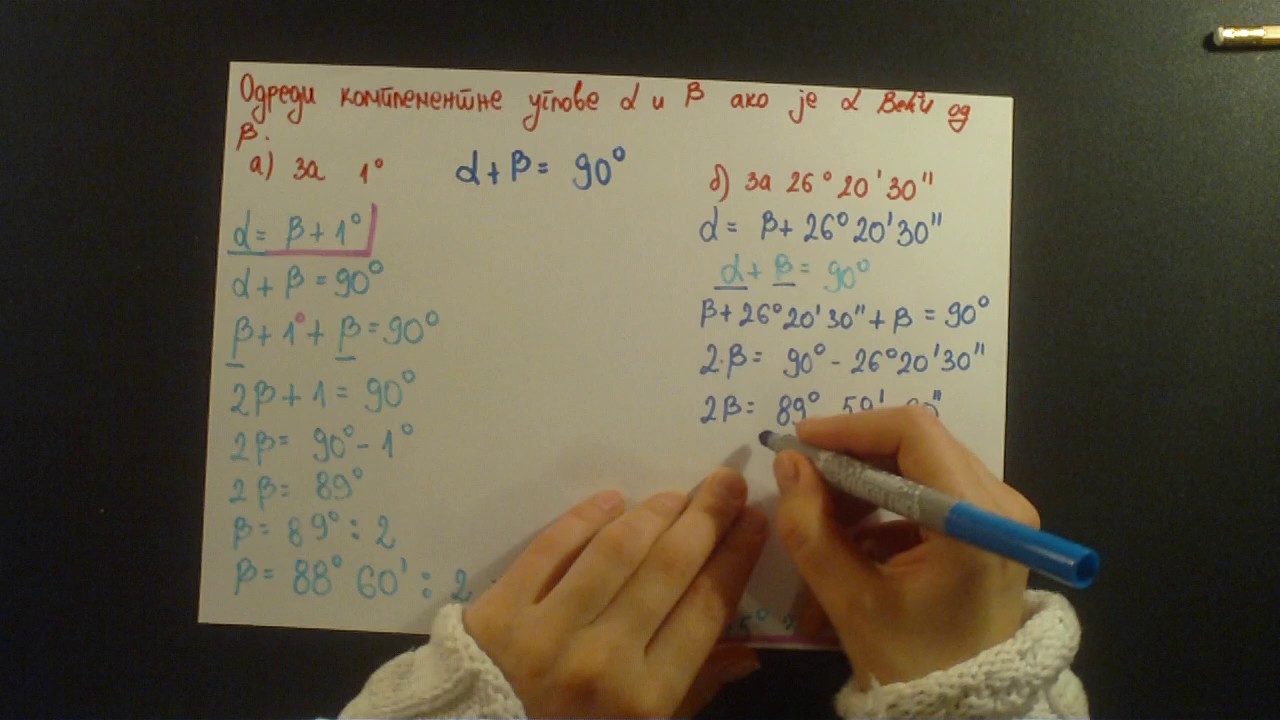 Одреди комплементне углове α и β ако је α већи од
β.
а) за 1°
α + β = 90°
α = β + 1°
α + β = 90°
β + 1° + β = 90°
2β + 1 = 90°
2β = 90° - 1°
2β = 89°
β = 89° : 2
β = 88° 60' : 2
б) за 26° 20' 30"
α = β + 26° 20' 30"
α + β = 90°
β + 26° 20' 30" + β = 90°
2·β = 90° - 26° 20' 30"
2β = 89° 59'